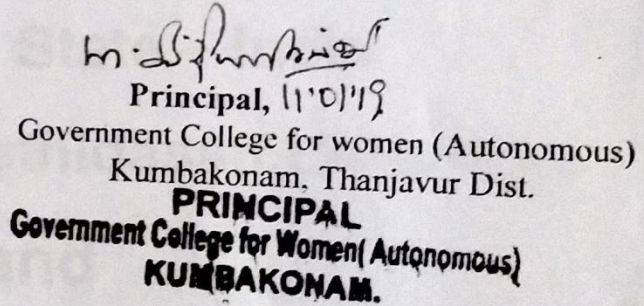 Principal, 11'01'19
Government College for women (Autonomous)
Kumbakonam, Thanjavur Dist.
PRINCIPAL
Government College for Women( Autonomous)
KUMBAKONAM.